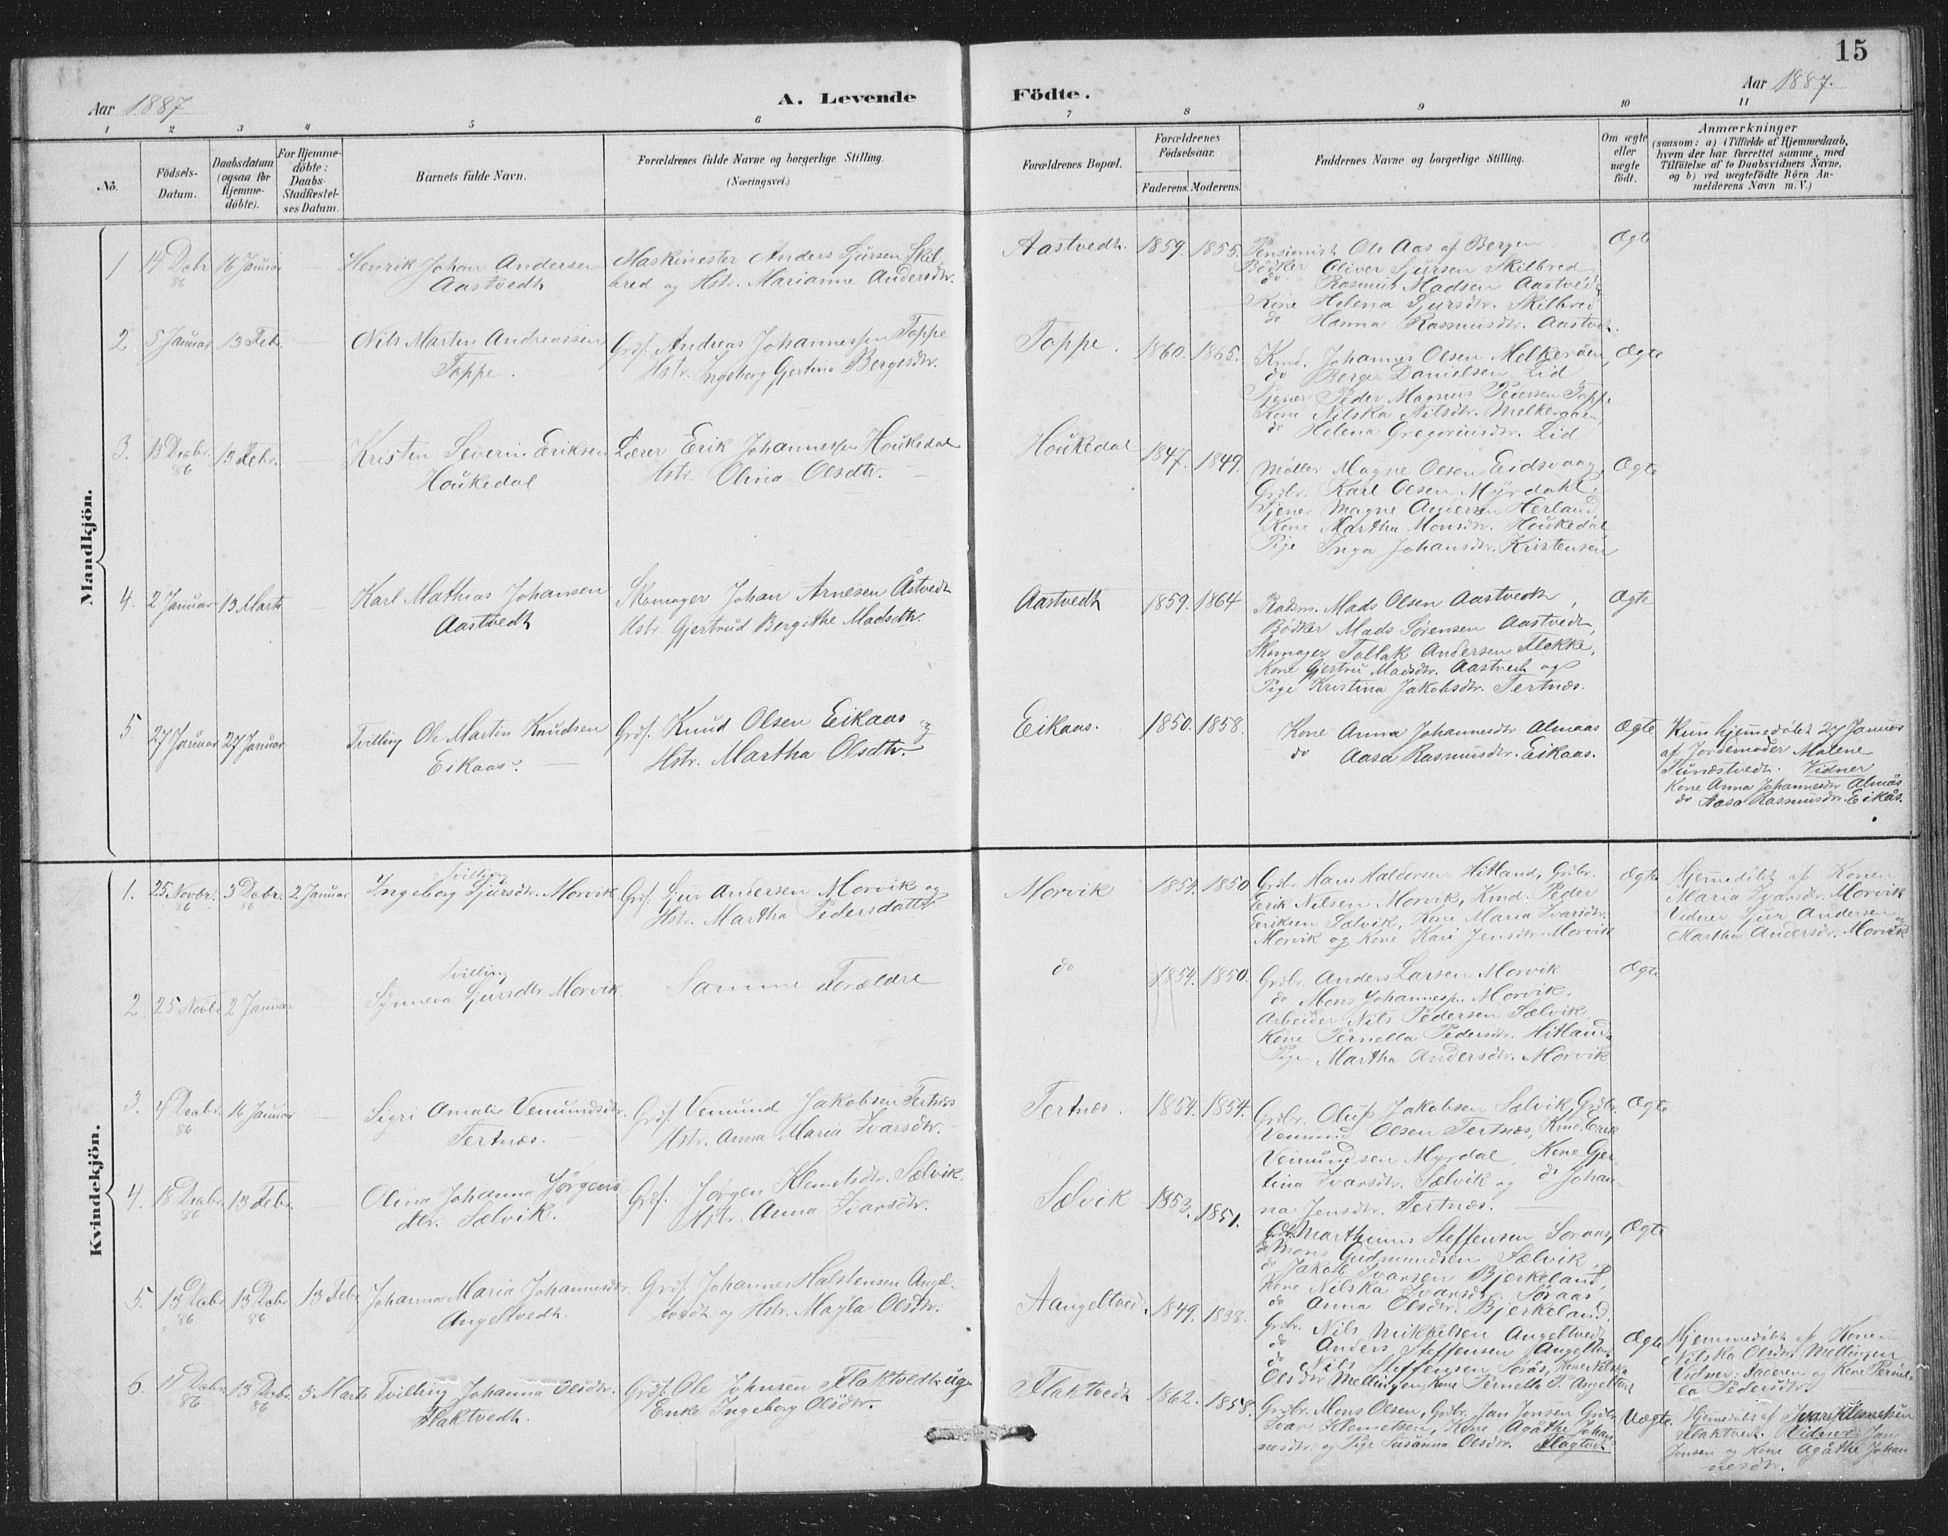 15
Aar 1887
A. Levende Födte.
Aar 1887.
1 2 3 4 5 6 7 8 9 10 11
No.
Födsels-
Datum.
Daabsdatum
(ogsaa for
Hjemme-
döbte).
For Hjemme-
döbte:
Daabs-
Stadfæstel-
ses Datum.
Barnets fulde Navn.
Forældrenes fulde Navne og borgerlige Stilling.
(Næringsvei.)
Forældrenes Bopæl.
Forældrenes
Födselsaar.
Faderens. Moderens.
Faddernes Navne og borgerlige Stilling.
Om ægte
eller
uægte
født.
Anmærkninger
(saasom: a) i Tilfælde af Hjemmedaab,
hvem der har forrettet samme, med
Tilföielse af to Daabsvidners Navne,
og b) ved uægtefödte Börn An-
melderens Navn m. V.)
Mandkjön.
1 14 Decbr 86 16 Januar
Henrik Johan Andersen
Aastvedt
Maskinester Anders Sjursen Skil-
bred og Hstr. Marianne Andersdtr.
Aastvedt. 1859. 1855.
Pensionist Ole Aas af Bergen
Bödker Oliver Sjursen Skilbred
do Rasmus Madsen Aastvedt
Kone Helena Sjursdtr. Skilbred
do Hanna Rasmusdtr. Aastvedt.
Ægte
2 5 Januar 13 Feb.
Nils Martin Andreassen
Toppe.
Grdf. Andreas Johannessen Toppe
Hstr. Ingeborg Gjertina Bergesdtr.
Toppe. 1860. 1865.
Kmd. Johannes Olsen Melkeröen,
do Berge Danielsen Lid
Tjener Peder Magnus Pedersen Toppe
Kone Nilska Nilsdtr. Melkeröen
do Helena Gregoriusdtr. Lid
Ægte
3. 18 Decbr. 86 13 Febr.
Kristen Severin Eriksen
Houkedal
Lærer Erik Johannessen Houkedal
Hstr. Olina Olsdtr.
Houkedal 1847. 1849.
Møller Magne Olsen Eidsvaag,
Grdbr. Karl Olsen Myrdahl.
Tjener Magne Andersen Herland,
Kone Martha Monsdtr. Houkedal
Pige Inga Johansdtr. Kristensen
Ægte
4. 2 Januar 13 Marts
Karl Mathias Johansen
Aastvedt
Skomager Johan Arnesen Åstvedt
Hstr. Gjertrud Bergithe Madsdtr.
Aastvedt 1859. 1864
Mads Olsen Aastvedt,
Bödker Mads Sørensen Aastvedt,
Skomager Tollak Andersen Flekke,
Kone Gjertru Madsdtr. Aastvedt og
Pige Kristina Jakobsdtr. Tertnæs.
Ægte
5. 27 Januar 27 Januar
Tvilling Ole Martin Knudsen
Eikaas.
Grdf. Knud Olsen Eikaas og
Hstr. Martha Olsdtr.
Eikaas. 1850. 1858.
Kone Anna Johannesdtr Almaas
do Aasa Rasmusdtr. Eikaas.
Ægte
Kun hjemmedöbt 27 Januar
af Jordemoder Malene
Vidner
Kone Anna Johannesdtr Almås
do Aasa Rasmusdtr. Eikås.
Kvindekjön.
1. 25 Novbr. 86 3 Decbr. 86 2 Januar
Tvilling
Ingeborg Sjursdtr. Morvik
Grdf. Sjur Andersen Morvik og
Hstr. Martha Pedersdatter
Morvik 1854. 1850
Grdbr Hans Haldorsen Hitland, Grdbr.
Erik Nilsen Morvik, Kmd. Peder
Eriksen Sælvik, Kone Maria Ivarsdtr.
Morvik og Kone Kari Jensdtr. Morvik
Ægte
Hjemmedöbt af Konen
Maria Ivarsdtr. Morvik
Vidner Sjur Andersen og
Martha Andersdtr. Morvik
2. 25 Novbr 2 Januar
Tvilling
Synneva Sjursdtr Morvik.
Samme Forældre
do 1854. 1850.
Grdbr. Anders Larsen Morvik
do Mons Johannessen Morvik.
Arbeider Nils Pedersen Sælvik,
Kone Pernella Pedersdtr. Hitland
Pige Martha Andersdtr. Morvik
Ægte
3. 4 Decbr. 86 16 Januar
Sigri Amalie Vemundsdtr.
Tertnæs.
Grdf. Vemund Jakobsen Tertnæs
Hstr. Anna Maria Ivarsdtr.
Tertnæs. 1854. 1854.
Grdbr. Oluf Jakobsen Sælvik, Grdbr.
Vemund Olsen Tertnæs, Kmd. Erik
Vemundsen Myrdal, Kone Gjer-
tina Ivarsdtr. Sælvik og do Johan-
na Jensdtr. Tertnæs.
Ægte
4. 18 Decbr. 86 13 Febr.
Olina Johanna Jörgens
dtr. Sælvik.
Grdf. Jörgen Klemetsdtr. Sælvik.
Hstr. Anna Ivarsdtr.
Sælvik 1853. 1851.
Marthinus Steffensen Soraas,
do Mons Gudmundsen Sælvik
do Jakob Ivarsen Bjerkeland,
Kone Nilska Ivarsdtr. Soraas,
do Anna Olsdtr. Bjerkeland.
Ægte
5. 13 Decbr. 86 13 Decbr 86 13 Febr
Johanna Maria Johannesdtr
Angeltvedt.
Grdf. Johannes Halstensen Angel-
tvedt og Hstr. Magla Olsdtr.
Aangeltvedt. 1849. 1838.
Grdbr. Nils Mikkelsen Angeltvedt
do Anders Steffensen Angeltvedt
do Nils Steffensen Sorås, Kone Nilska
Olsdtr Mellingen, Kone Pernella P. Angeltvedt
Ægte
Hjemmedöbt af Konen
Nilska Olsdtr. Mellingen
Vidner: Faderen og Kone Pernil-
la Pedersdtr.
6. 11 Decbr. 86 13 Decbr. 86 3 Marts
Tvilling Johanna Olsdtr.
Flaktvedt.
Grdf. Ole Johnsen Flaktvedt ug
Enke Ingeborg Olsdtr.
Flaktvedt 1862. 1858.
Grdbr. Mons Olsen, Grdbr. Jan Jonsen Grdbr
Ivar Klemetsen, Kone Agåthe Johan-
nesdtr. og Pige Susanna Olsdtr. Flagtvedt
Uægte.
Hjemmedöbt af Ivar Klemetsen
Flaktvedt. Vidner: Jan
Jonsen og Kone Agåthe Johan
nesdtr.